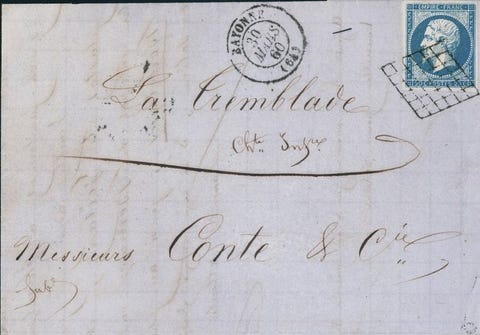 BAYONNE
30
MARS
60
(64)
EMPIRE FRANC
20 C POSTES 20 C
La Tremblade
Chte Infre
Messieurs Conte & Cie